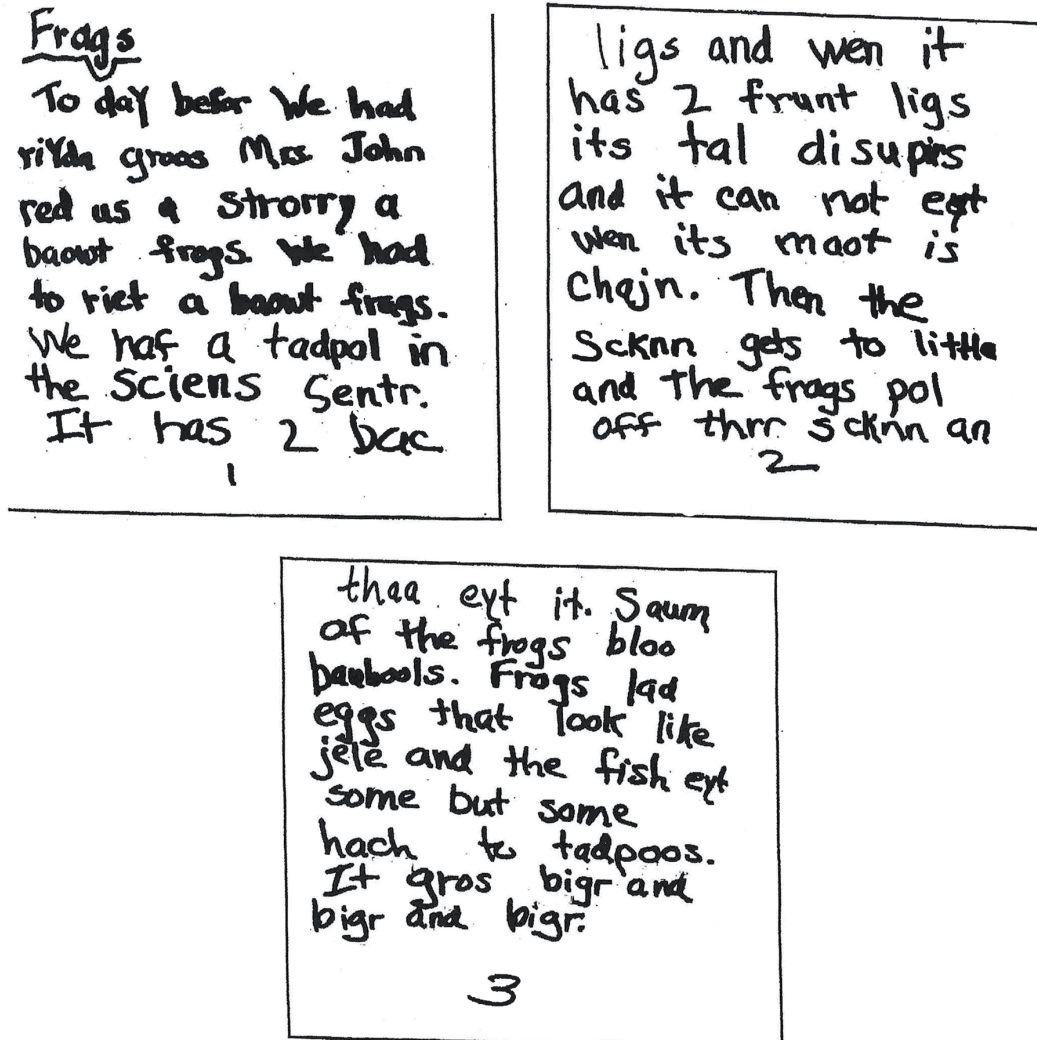 Frogs
To day befor We had
riYda groos Mrs. John
red us a strorry a
baowt frogs. We had
to riet a baowt frogs.
We haf a tadpol in
the sciens Sentr.
It has 2 bac
1
ligs and wen it
has 2 frunt ligs
its tal disupirs
and it can not eyt
wen its maot is
Chajn. Then the
Scknn gets to little
and the frogs pol
off thrr scknn an
2
thaa eyt it. Saum
of the frogs bloo
baubools. Frogs lad
eggs that look like
jele and the fish eyt
some but some
hach to tadpoos.
It gros bigr and
bigr and bigr.
3